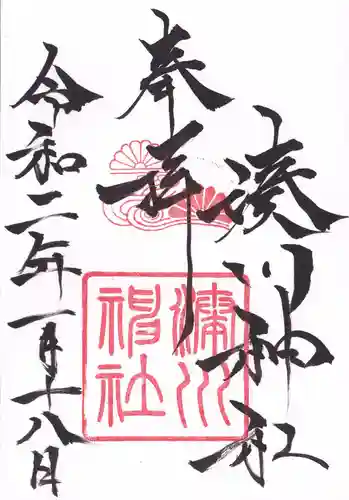 奉拝
湊川神社
湊川
神社
令和二年一月十八日